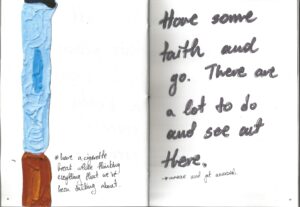 *have a cigarette
break while thinking
everything that we've
been talking about.
Have some
faith and
go. There are
a lot to do
and see out
there.
and get